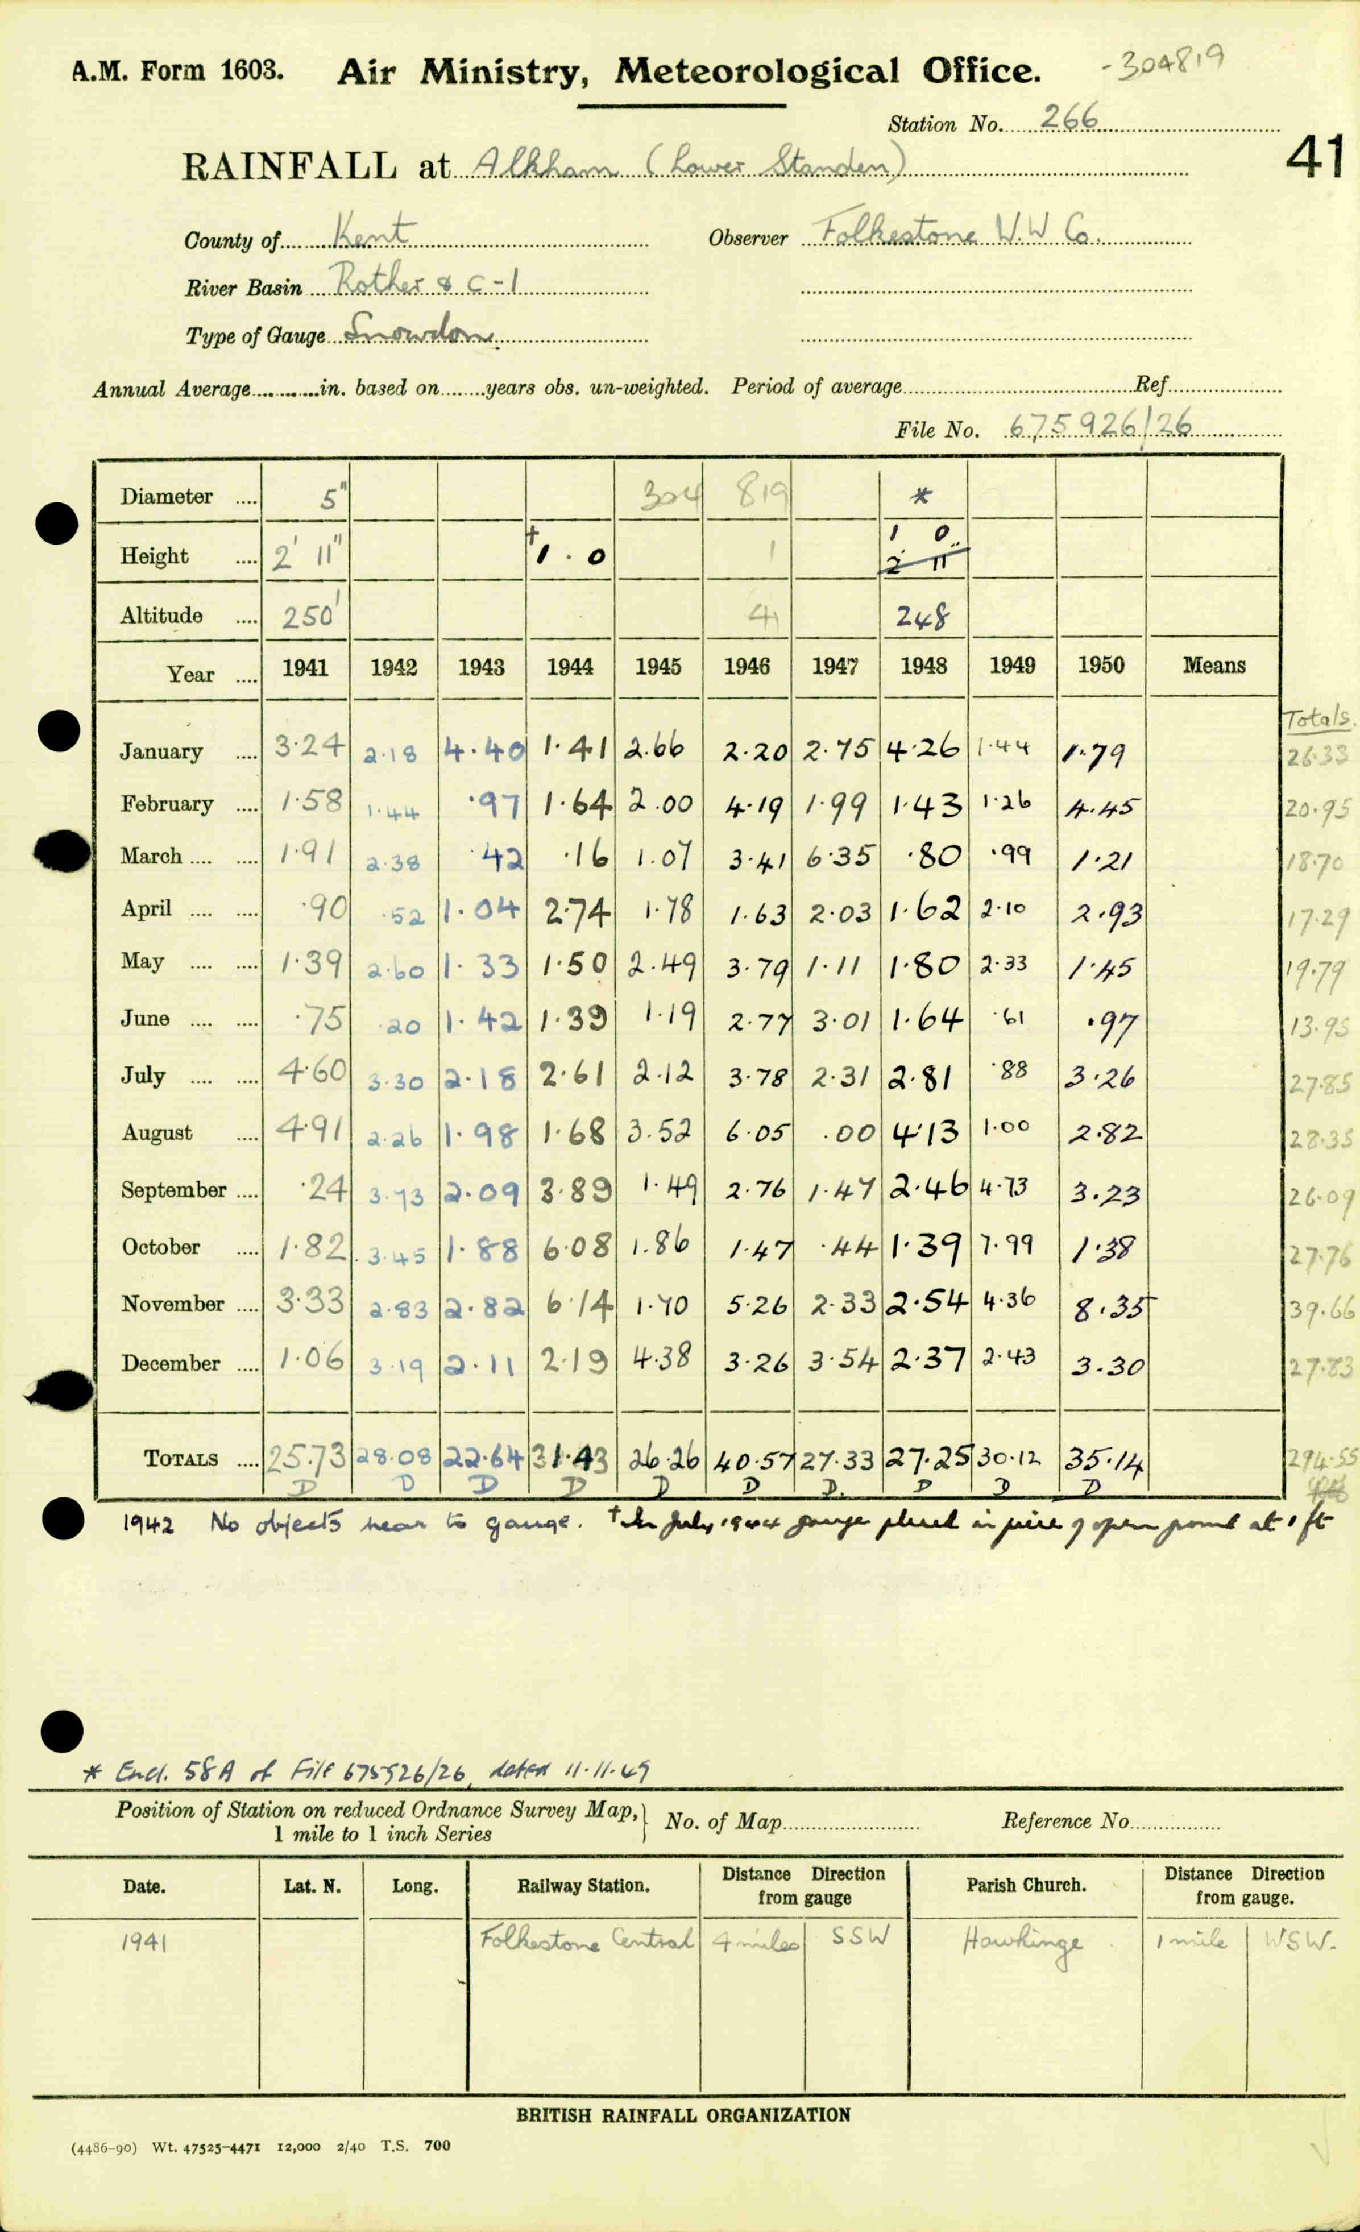 A.M. Form 1603. Air Ministry, Meteorological Office. -304819
Station No. 266
41
RAINFALL at Alkham (Lower Standen)
County of Kent Observer Folkestone W.W Co.
River Basin Rother & C-1
Type of Gauge Snowdon
Annual Average in. based on years obs. un-weighted. Period of average Ref
File No. 675926/26
Diameter .... 5" 304 819 *
Height .... 2' 11" †1.0 1 1 0 2 11
Altitude .... 250' 4 248
Year .... 1941 1942 1943 1944 1945 1946 1947 1948 1949 1950 Means
Totals.
January .... 3.24 2.18 4.40 1.41 2.66 2.20 2.75 4.26 1.44 1.79 26.33
February .... 1.58 1.44 .97 1.64 2.00 4.19 1.99 1.43 1.26 4.45 20.95
March .... .... 1.91 2.38 .42 .16 1.07 3.41 6.35 .80 .99 1.21 18.70
April .... .... .90 .52 1.04 2.74 1.78 1.63 2.03 1.62 2.10 2.93 17.29
May .... .... 1.39 2.60 1.33 1.50 2.49 3.79 1.11 1.80 2.33 1.45 19.79
June .... .... .75 .20 1.42 1.39 1.19 2.77 3.01 1.64 .61 .97 13.95
July .... .... 4.60 3.30 2.18 2.61 2.12 3.78 2.31 2.81 .88 3.26 27.85
August .... 4.91 2.26 1.98 1.68 3.52 6.05 .00 4.13 1.00 2.82 28.35
September .... .24 3.73 2.09 3.89 1.49 2.76 1.47 2.46 4.73 3.23 26.09
October .... 1.82 3.45 1.88 6.08 1.86 1.47 .44 1.39 7.99 1.38 27.76
November .... 3.33 2.83 2.82 6.14 1.70 5.26 2.33 2.54 4.36 8.35 39.66
December .... 1.06 3.19 2.11 2.19 4.38 3.26 3.54 2.37 2.43 3.30 27.83
TOTALS .... 25.73 28.08 22.64 31.43 26.26 40.57 27.33 27.25 30.12 35.14 294.55
D D D D D D D. D D D
1942 No objects near to gauge. † In July, 1944 gauge placed in piece of open ground at 1 ft
* Encl. 58A of File 675926/26, dated 11.11.49
Position of Station on reduced Ordnance Survey Map, No. of Map Reference No.
1 mile to 1 inch Series
Date. Lat. N. Long. Railway Station. Distance Direction from gauge Parish Church. Distance Direction from gauge.
1941 Folkestone Central 4 miles SSW Hawkinge 1 mile WSW.
BRITISH RAINFALL ORGANIZATION
(4486-90) Wt. 47525-4471 12,000 2/40 T.S. 700